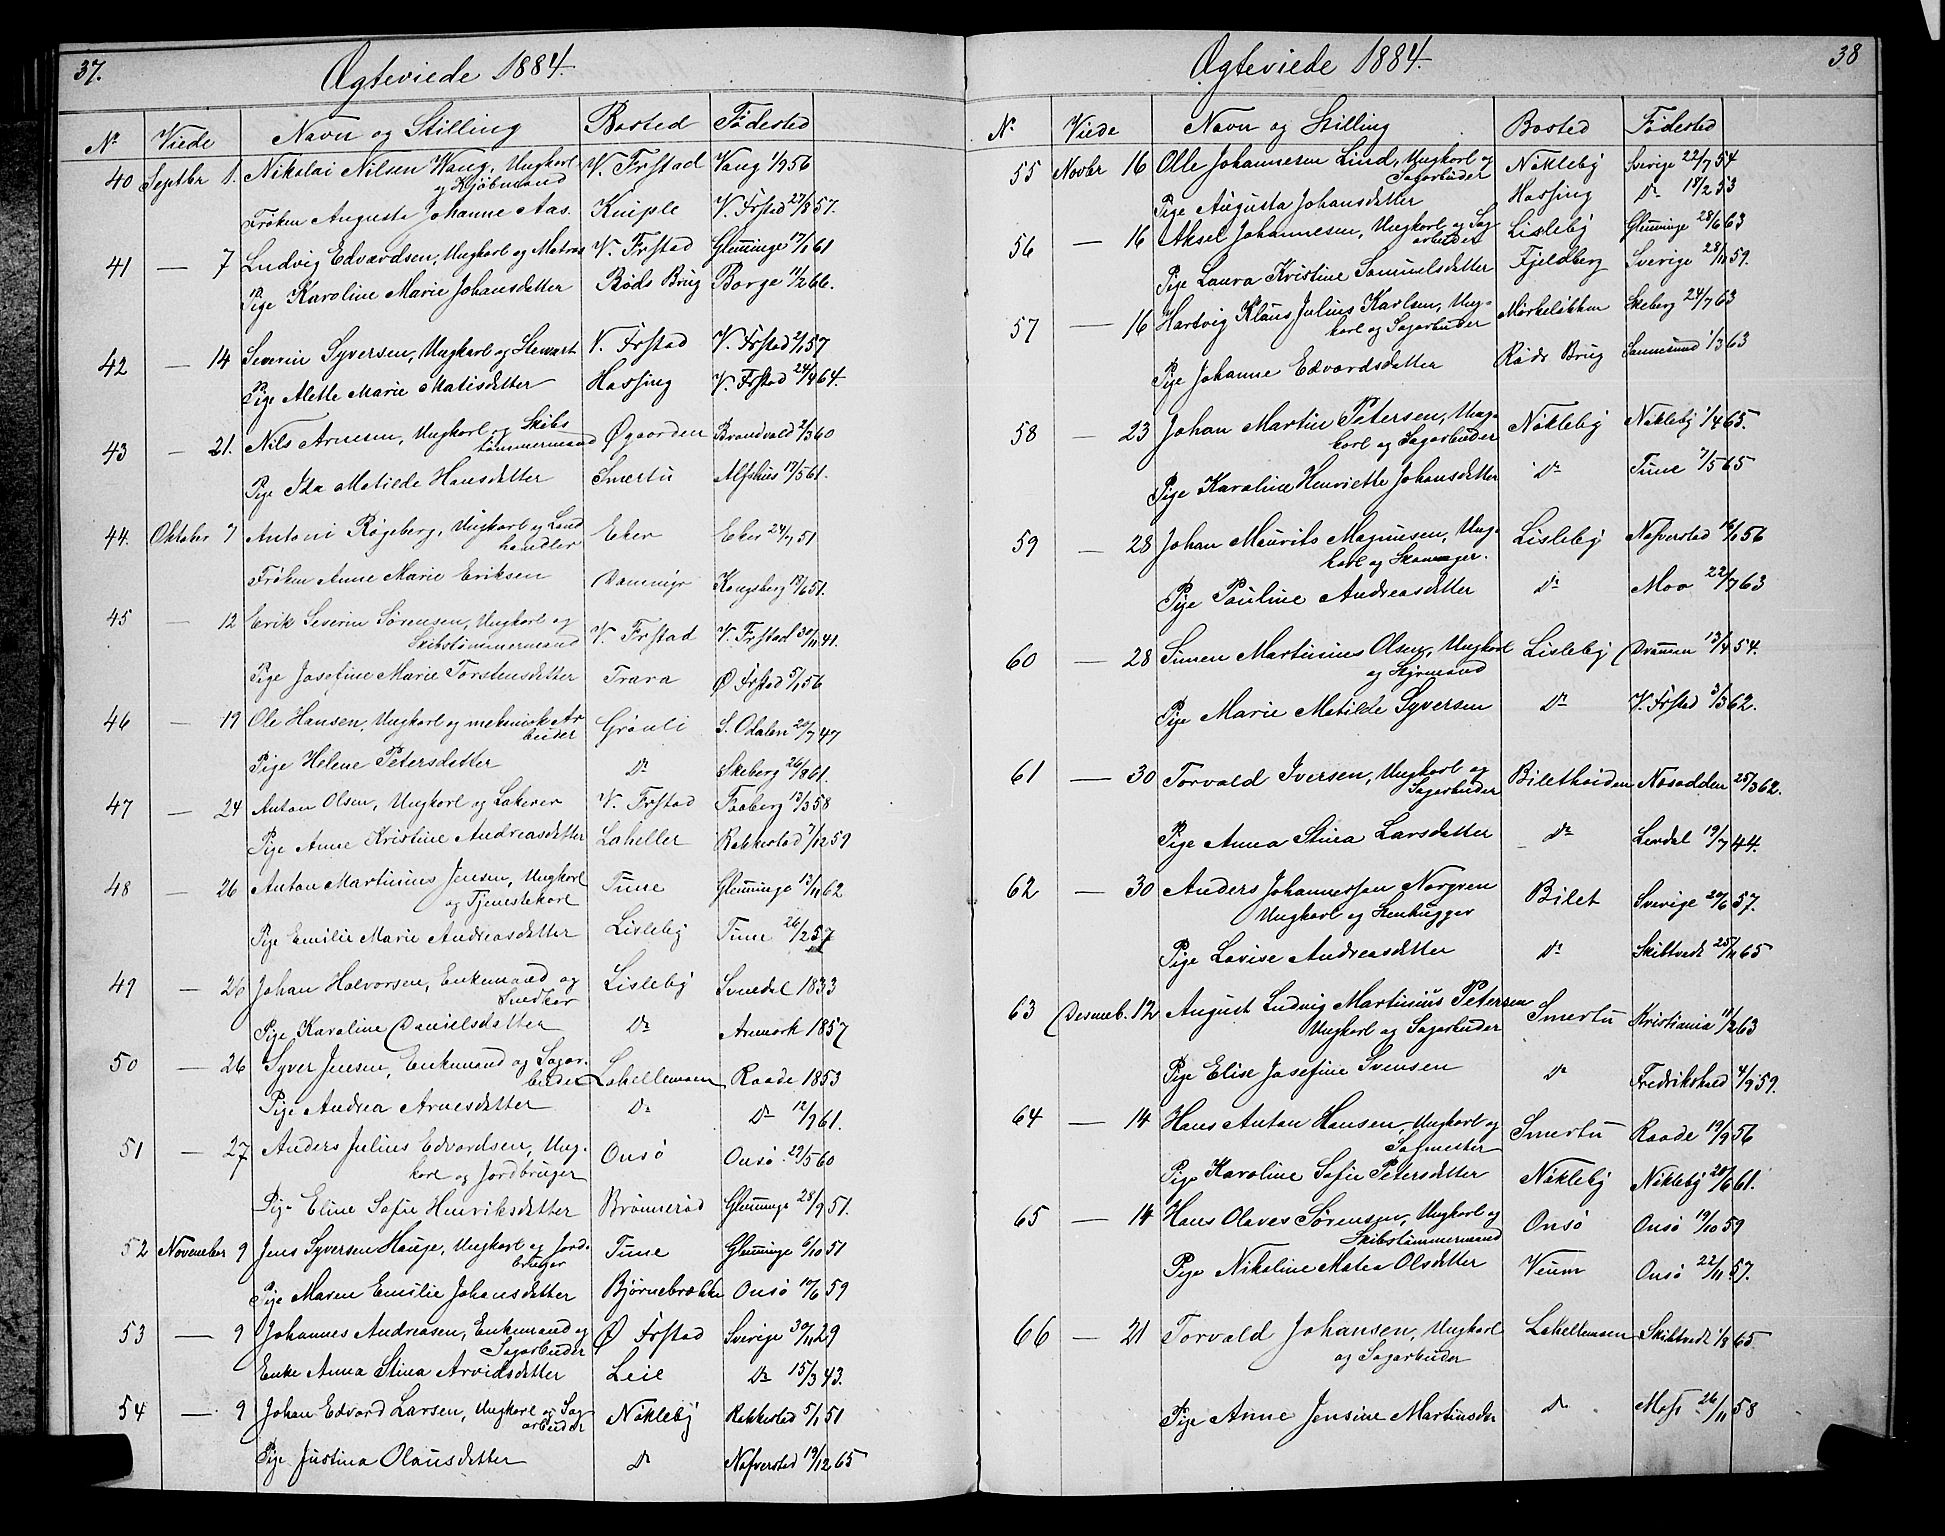 37.
Ægteviede 1884.
Nr Viede Navn og Stilling Bosted Fødested
40 Septbr 1. Nikolai Nilsen Wang, Ungkarl V. Frstad Vang 1/9 56
og Kjøbmand
Frøken Augusta Johanne Aas. Kniple V. Frstad 27/8 57.
41 — 7 Ludvig Edvardsen, Ungkarl og Matros V. Frstad Glemminge 17/1 61
Pige Karoline Marie Johansdatter Røds Brug Borge 11/2 66.
42 — 14 Severin Syversen, Ungkarl og Stewart V. Frstad V. Frstad 2/1 57
Pige Alette Marie Matisdatter Hassing V. Frstad 24/4 64.
43 — 21. Nils Arnesen, Ungkarl og Skibs Øgaarden Brandvald 2/3 60
tømmermand
Pige Ida Matilde Hansdatter Smertu Alfshus 17/5 61.
44. Oktober 7 Antoni Røgeberg, Ungkarl og Land Eker Eker 24/7 51
handler
Frøken Anne Marie Eriksen Dammyr Kongsberg 18/6 51.
45 — 12 Erik Severin Sørensen, Ungkarl og V. Frstad V. Frstad 30/11 41.
Skibstømmermand
Pige Josefine Marie Torstensdatter Trara Ø Frstad 5/1 56
46 — 19 Ole Hansen, Ungkarl og mekanisk Ar Grønli S. Odalen 20/7 47
beider
Pige Helene Petersdatter Do Skeberg 26/8 61.
47 — 24 Anton Olsen, Ungkarl og Lakerer V. Frstad Faaberg 13/3 58
Pige Anne Kristine Andreasdatter Laheller Rakkestad 7/12 59
48 — 26 Anton Martinius Jensen, Ungkarl Tune Glemminge 13/11 62
og Tjenestekarl
Pige Emilie Marie Andreasdatter Lisleby Tune 26/2 57
49 — 26 Johan Halvorsen, Enkemand og Lisleby Svnedal 1833
Snedker
Pige Karoline Danielsdatter Do Aremark 1857
50 — 26 Syver Jensen, Enkemand og Sagar- Lahellemoen Raade 1853
beider
Pige Andrea Arnesdatter Do Do 12/9 61.
51 — 27 Anders Julius Edvardsen, Ung- Onsø Onsø 29/5 60
karl og Jordbruger
Pige Eline Sofie Henriksdatter Brønnerød Glemminge 28/9 51.
52 November 9 Jens Syversen Hauge, Ungkarl og Jord- Tune Glemminge 6/10 51
bruger
Pige Maren Emilie Johansdatter Bjørnebrække Onsø 17/6 59
53 — 9 Johannes Andreasen, Enkemand og Ø Frstad Sverige 30/11 29
Sagarbeider
Enke Anna Stina Arvidsdatter Leie Do 15/3 43.
54 — 9 Johan Edvard Larsen, Ungkarl og Sag Nøkleby Rakkestad 5/1 51
arbeider
Pige Justina Olausdatter Do Nafverstad 19/12 65
38
Ægteviede 1884.
Nr. Viede Navn og Stilling Bosted Fødested
55 Novbr 16 Olle Johannesen Lind, Ungkarl og Nøkleby Sverige 22/7 54
Sagarbeider
Pige Augusta Johansdatter Hassing Do 18/2 53
56 — 16 Aksel Johannesen, Ungkarl og Sag Lisleby Glemminge 28/6 63
arbeider
Pige Laura Kristine Samuelsdatter Fjeldberg Sverige 28/11 59.
57 — 16 Hartvig Klaus Julius Karlsen, Ung- Mørkeløkken Skeberg 24/7 63
karl og Sagarbeider
Pige Johanne Edvardsdatter Røds Brug Sannesund 1/3 63
58 — 23 Johan Martin Petersen, Ung- Nøkleby Nøkleby 1/4 65.
karl og Sagarbeider
Pige Karoline Henriette Johansdatter Do Tune 7/5 65
59 — 28 Johan Maurits Magnusen, Ung- Lisleby Nafverstad 16/1 56
karl og Skomager.
Pige Pauline Andreasdatter Do Moo 22/7 63
60 — 28 Simen Martinius Olsen, Ungkarl Lisleby Drammen 13/4 54.
og Styrmand
Pige Marie Matilde Syversen Do V. Frstad 3/3 62.
61 — 30 Torvald Iversen, Ungkarl og Bilethøiden Nesodden 25/3 62.
Sagarbeider
Pige Anna Stina Larsdatter Do Lerdal 19/7 44.
62 — 30 Anders Johannesson Norgren Bilet Sverige 20/6 57.
Ungkarl og Stenhugger
Pige Lovise Andreasdatter Do Skibtvedt 25/11 65
63 Desemb. 12 August Ludvig Martinius Petersen Smertu Kristiania 11/2 63
Ungkarl og Sagarbeider
Pige Elise Josefine Svensen Do Fredrikshald 4/9 59.
64 — 14 Hans Anton Hansen, Ungkarl og Smertu Raade 19/9 56
Sagmester
Pige Karoline Sofie Petersdatter Nøkleby Nøkleby 20/6 61.
65 — 14 Hans Olaves Sørensen, Ungkarl og Onsø Onsø 19/10 59
Skibstømmermand
Pige Nikoline Matea Olsdatter Veum Onsø 22/11 57.
66 — 21 Torvald Johansen, Ungkarl Lahellemoen Skibtvedt 1/8 65.
og Sagarbeider
Pige Anne Jensine Martinsdr Do Moss 26/11 58